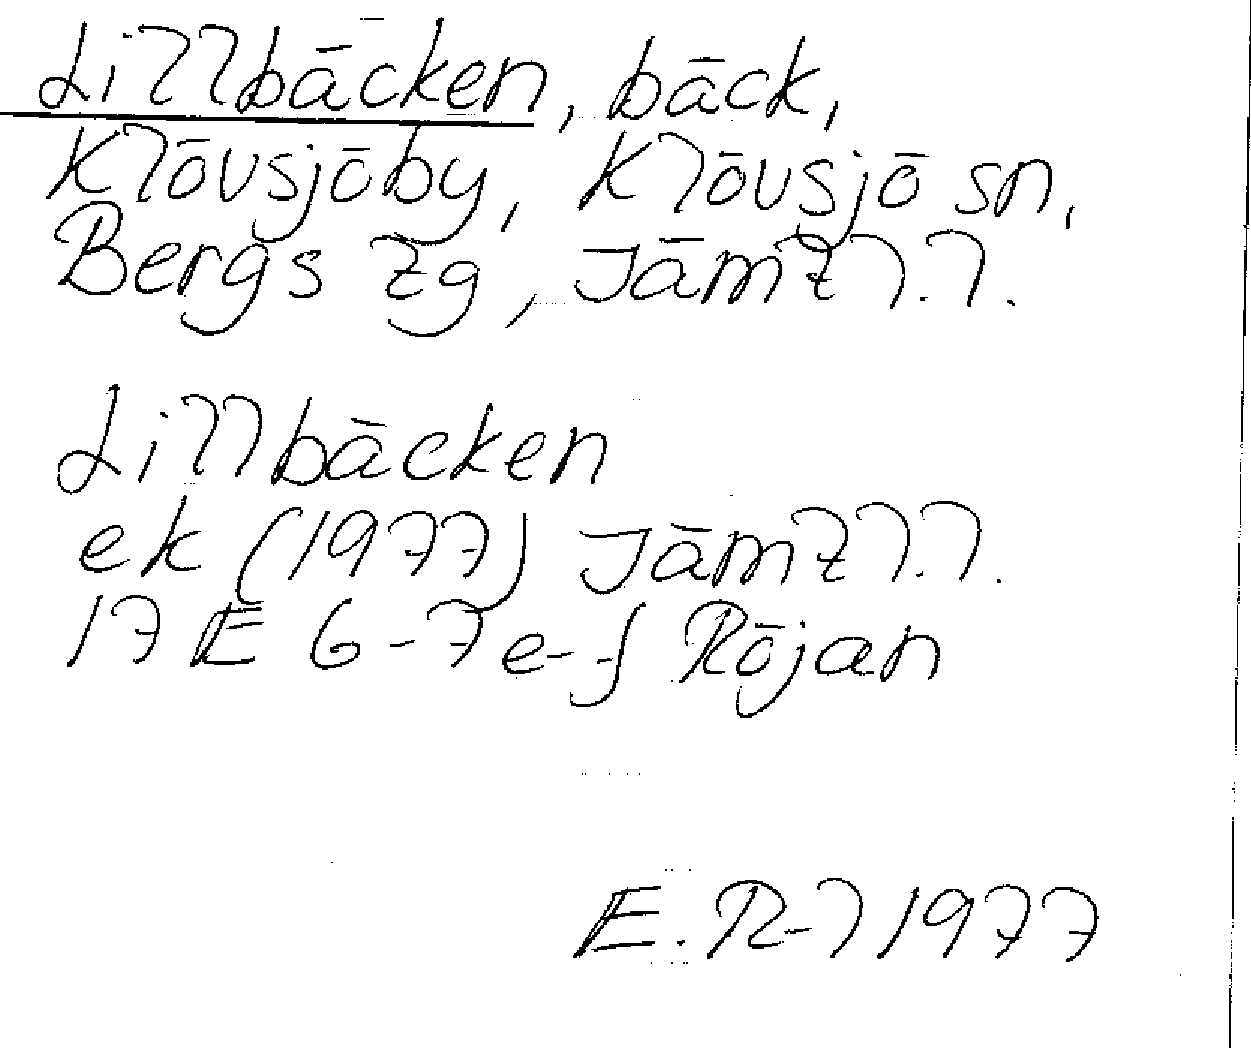 Lillbäcken, bäck,
Klövsjöby, Klövsjö sn,
Bergs tg, Jämtl.l.
Lillbäcken
ek (1977) Jämtl.l.
17 E 6-7 e-f Röjan
E. R-l 1977